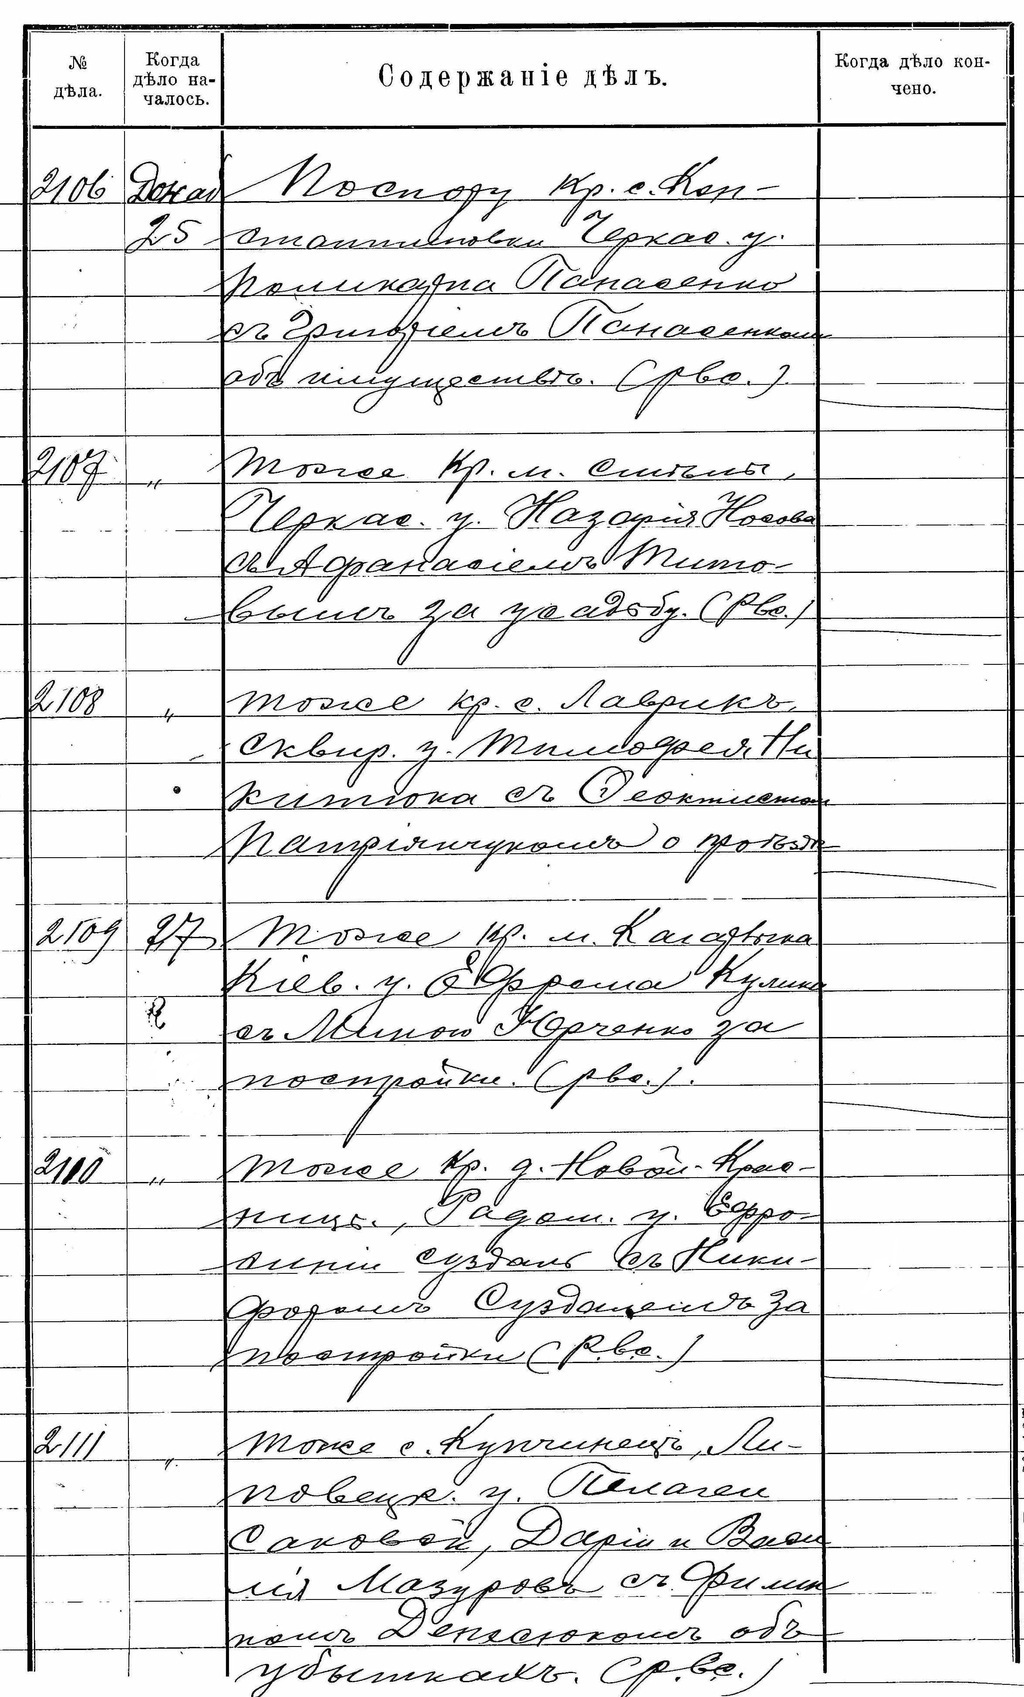 № дѣла.
Когда дѣло на-
чалось.
Содержаніе дѣлъ.
Когда дѣло кон-
чено.
2106 Декаб По спору кр. с. Кон-
25 стантиновки Черкас. у.
Поликарпа Панасенко
съ Григоріемъ Панасенкомъ
объ имуществѣ. (рвс.)
2107 „ Тоже Кр. м. Смѣлы,
Черкас. у. Назарія Носова
съ Афанасіемъ Тито-
вымъ за усадьбу. (Рвс.)
2108 „ тоже кр. с. Лаврикъ,
сквир. у. Тимофея Ни
китюка съ Феоктистом
Патріянчукомъ о
2109 27 Тоже кр. м. Кагарлыка
Кіев. у. Ефрема Кулика
съ Миною Юрченко за
постройки. (рвс.).
2110 „ тоже Кр. д. Новой-Крас-
ницы, Радом. у. Ефро-
синіи Суздаль съ Ники-
форомъ Суздалемъ за
постройки (Р.в.с.)
2111 „ тоже с. Купчинецъ, Ли-
повецк. у. Пелагеи
Саковой, Даріи и Васи
лія Мазуровъ съ Филип
помъ Денасюкомъ объ
убыткахъ. (р.вс.)